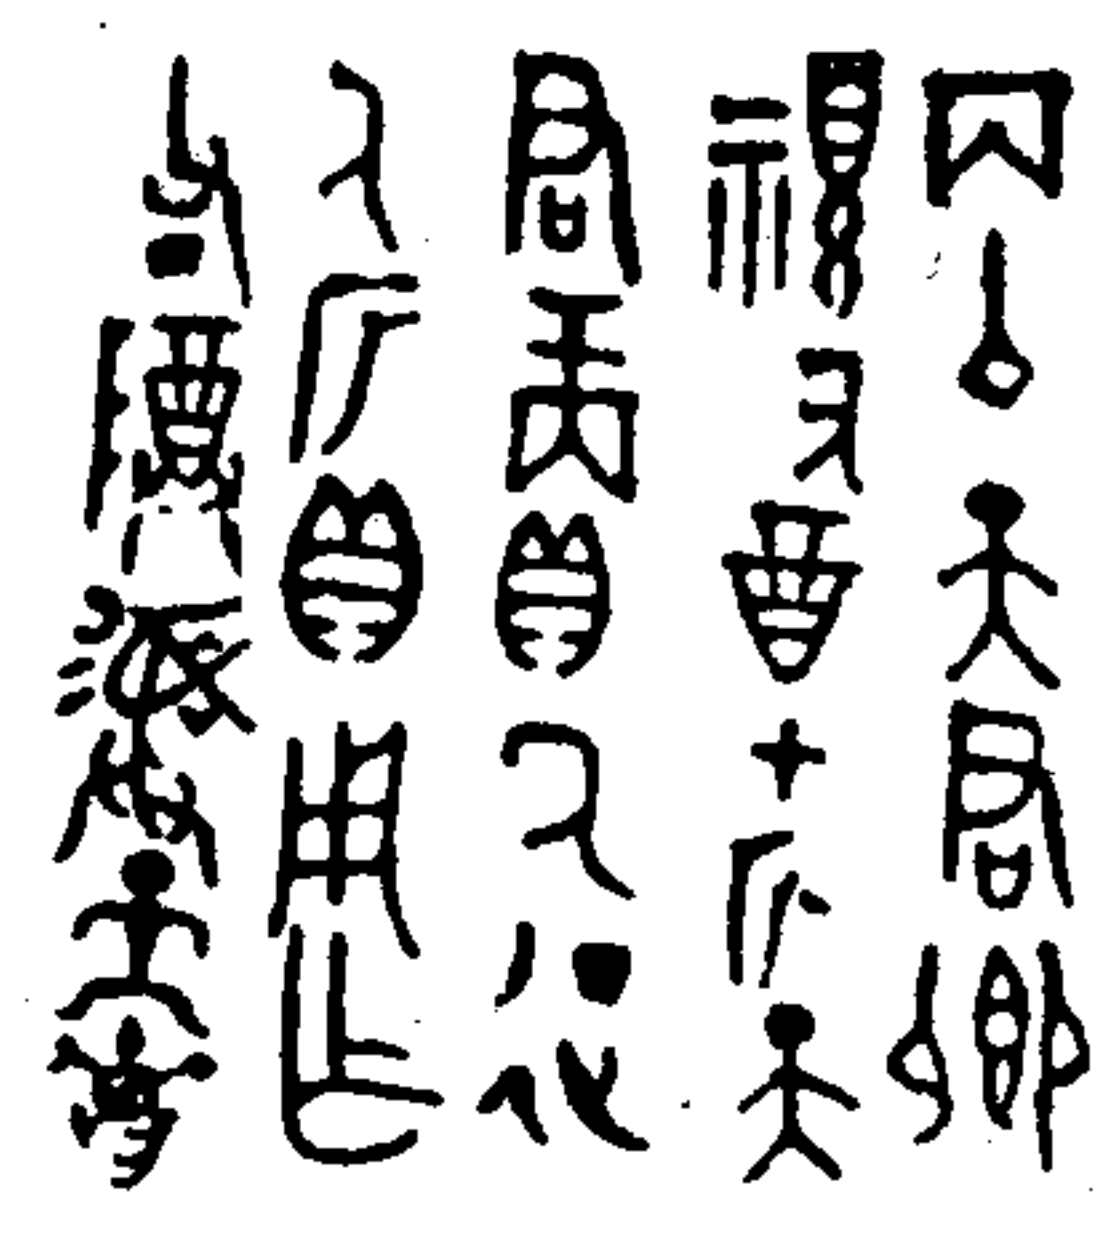 丙午天君鄉
酉才斤天
君商貝氒征
人斤貝用乍
父丁尊彝天黽